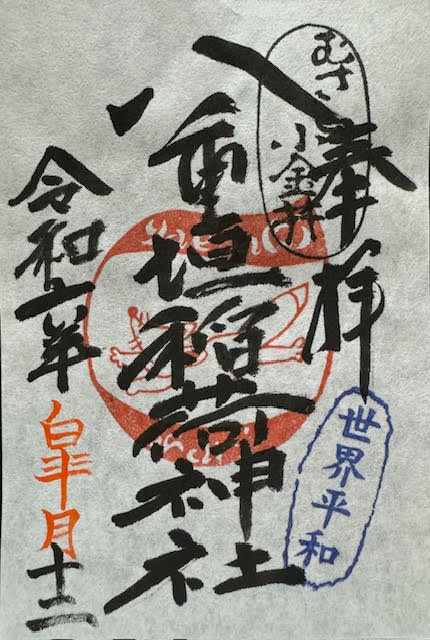 奉拝
むさし
小金井
世界平和
八重垣稲荷神社
令和六年皐月十二